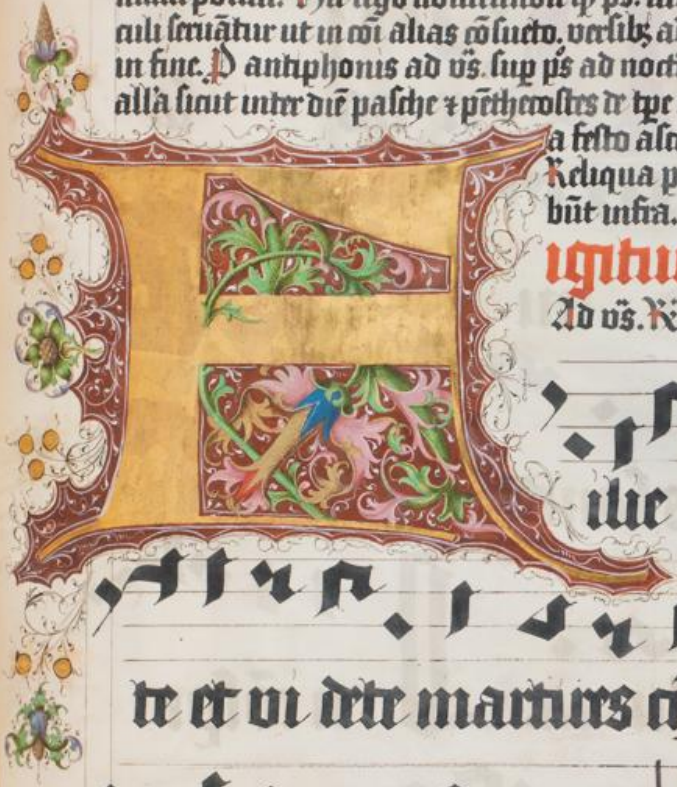 culi seruātur ut in cōi alias cōsueto. versibꝫ a
in fine. antiphonis ad v̄s. sup p̄s ad noct
all'a sicut inter diē pasche ⁊ pēthecostes de tp̄e
a festo asc
Reliqua p
būt infra.
igitu
Ad v̄s. R
F ilie
te et vi dete martires